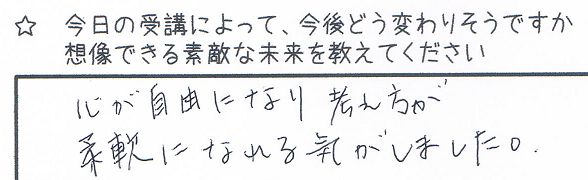 ☆ 今日の受講によって、今後どう変わりそうですか
想像できる素敵な未来を教えてください
心が自由になり 考え方が
柔軟になれる気がしました。